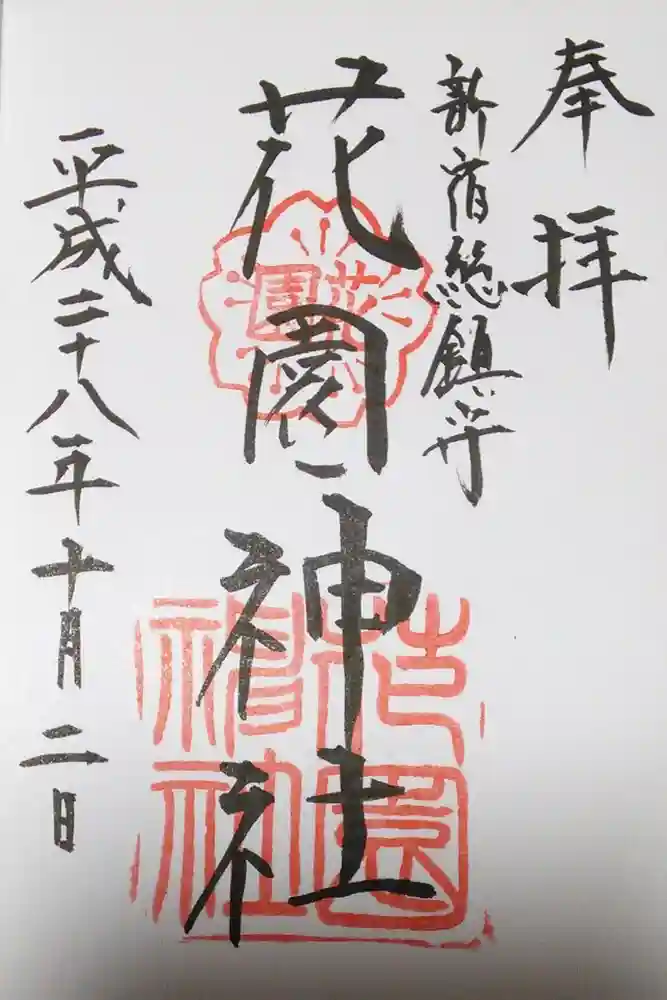 奉拝
新宿總鎮守
花園神社
平成二十八年十月二日
花園
花園神社